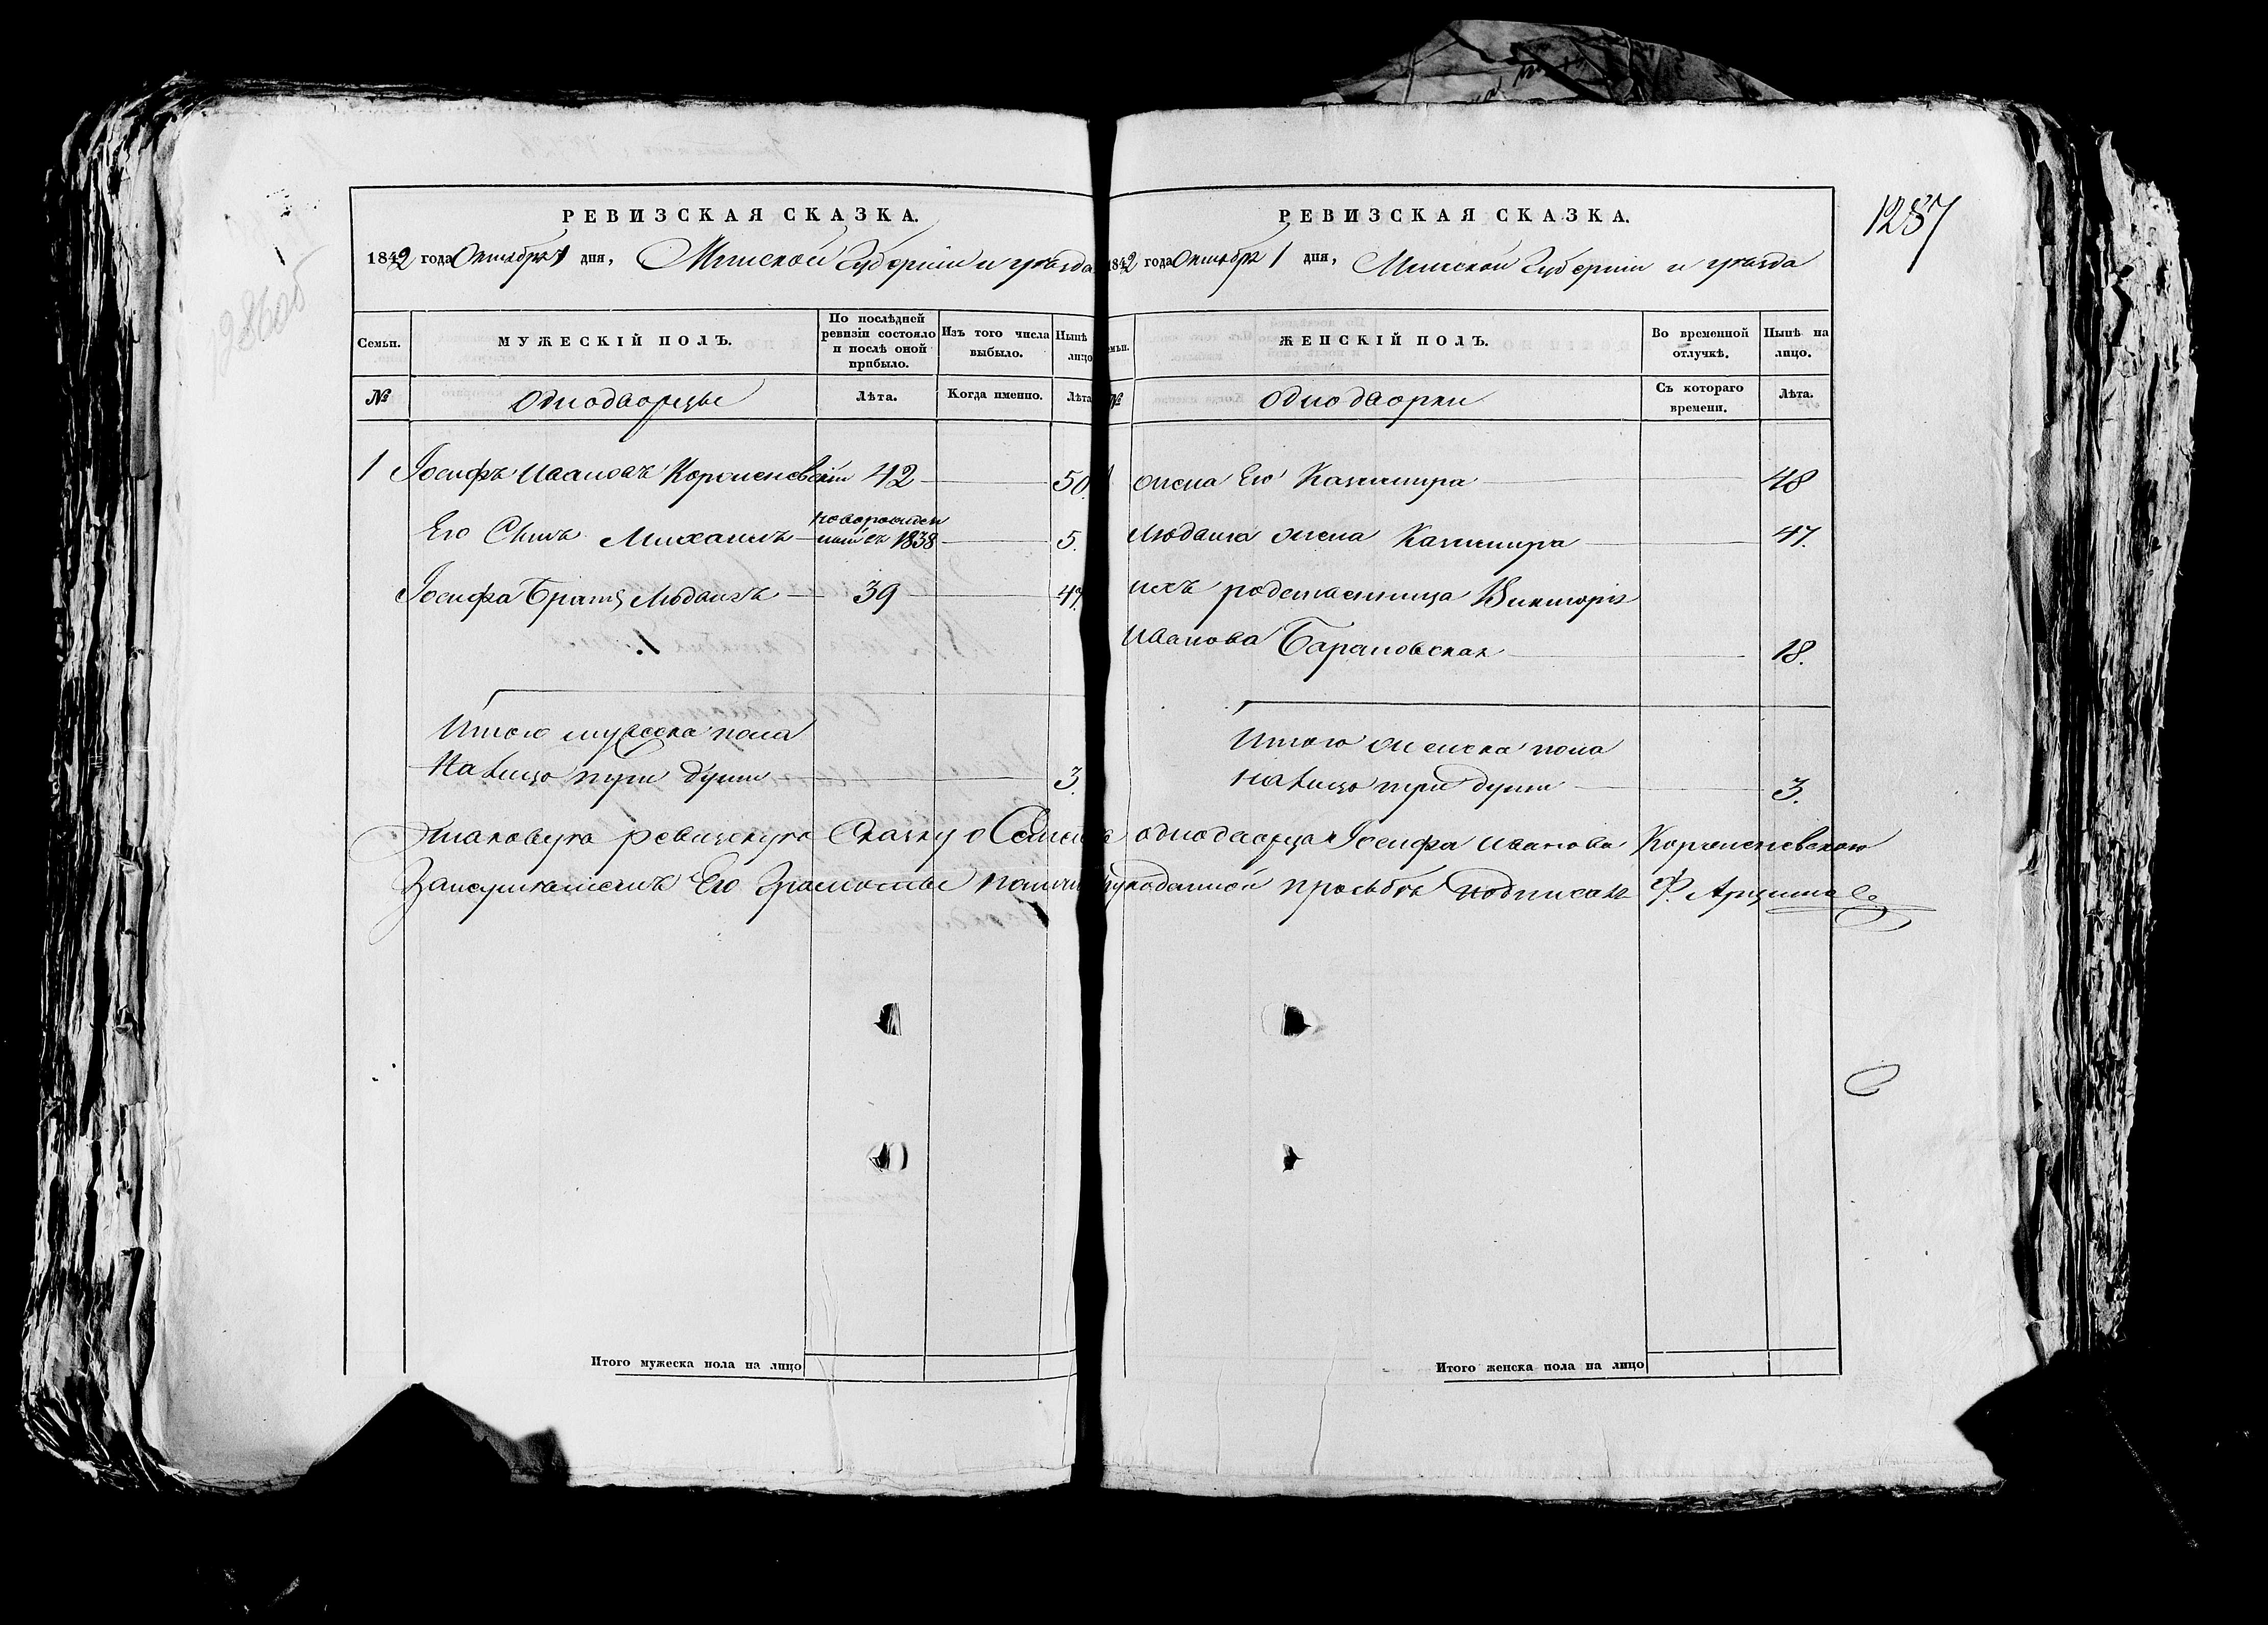 1287
РЕВИЗСКАЯ СКАЗКА.
1842 года Октября 1 дня, Минской Губерніи и уезда
Семьи.
МУЖЕСКІЙ ПОЛЪ.
По послѣдней ревизіи состояло и послѣ оной прибыло.
Изъ того числа выбыло.
Нынѣ лицо
№
Однодворцы
Лѣта.
Когда именно.
Лѣта
1 Іосифъ Ивановъ 42 50.
Его Сынъ Михаилъ новорожден ный въ 1838 5.
Іосифа Братъ Людвикъ 39 47.
Итого мужеска пола
На лицо три души 3.
РЕВИЗСКАЯ СКАЗКА.
1842 года Октября 1 дня, Минской Губерніи и уезда
ЖЕНСКІЙ ПОЛЪ.
Во временной отлучкѣ.
Нынѣ на лицо.
№
Однодворки
Съ котораго времени.
Лѣта.
жена Его Казимира 48
Людвика жена Казимира 47.
ихъ родственница Викторія
Иванова Барановская 18.
Итого женска пола
на лицо три души 3.
Таковую ревизскую Сказку о Семьи однодворца Іосифа Иванова
За неумѣніемъ Его Грамоты по рукоданной прозьбѣ подписалъ
Итого мужеска пола на лицо
Итого женска пола на лицо